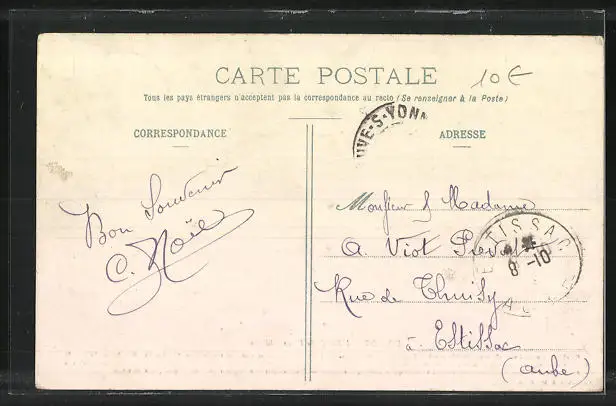 CARTE POSTALE
10€
Tous les pays étrangers n'acceptent pas la correspondance au recto (Se renseigner à la Poste)
CORRESPONDANCE
Bon Souvenir
C. Noël
UVE-S-YONN
ADRESSE
Monsieur & Madame
A. Viot
Rue de Thuisy
à Estissac
(Aube)
ESTISSAC
8 -10